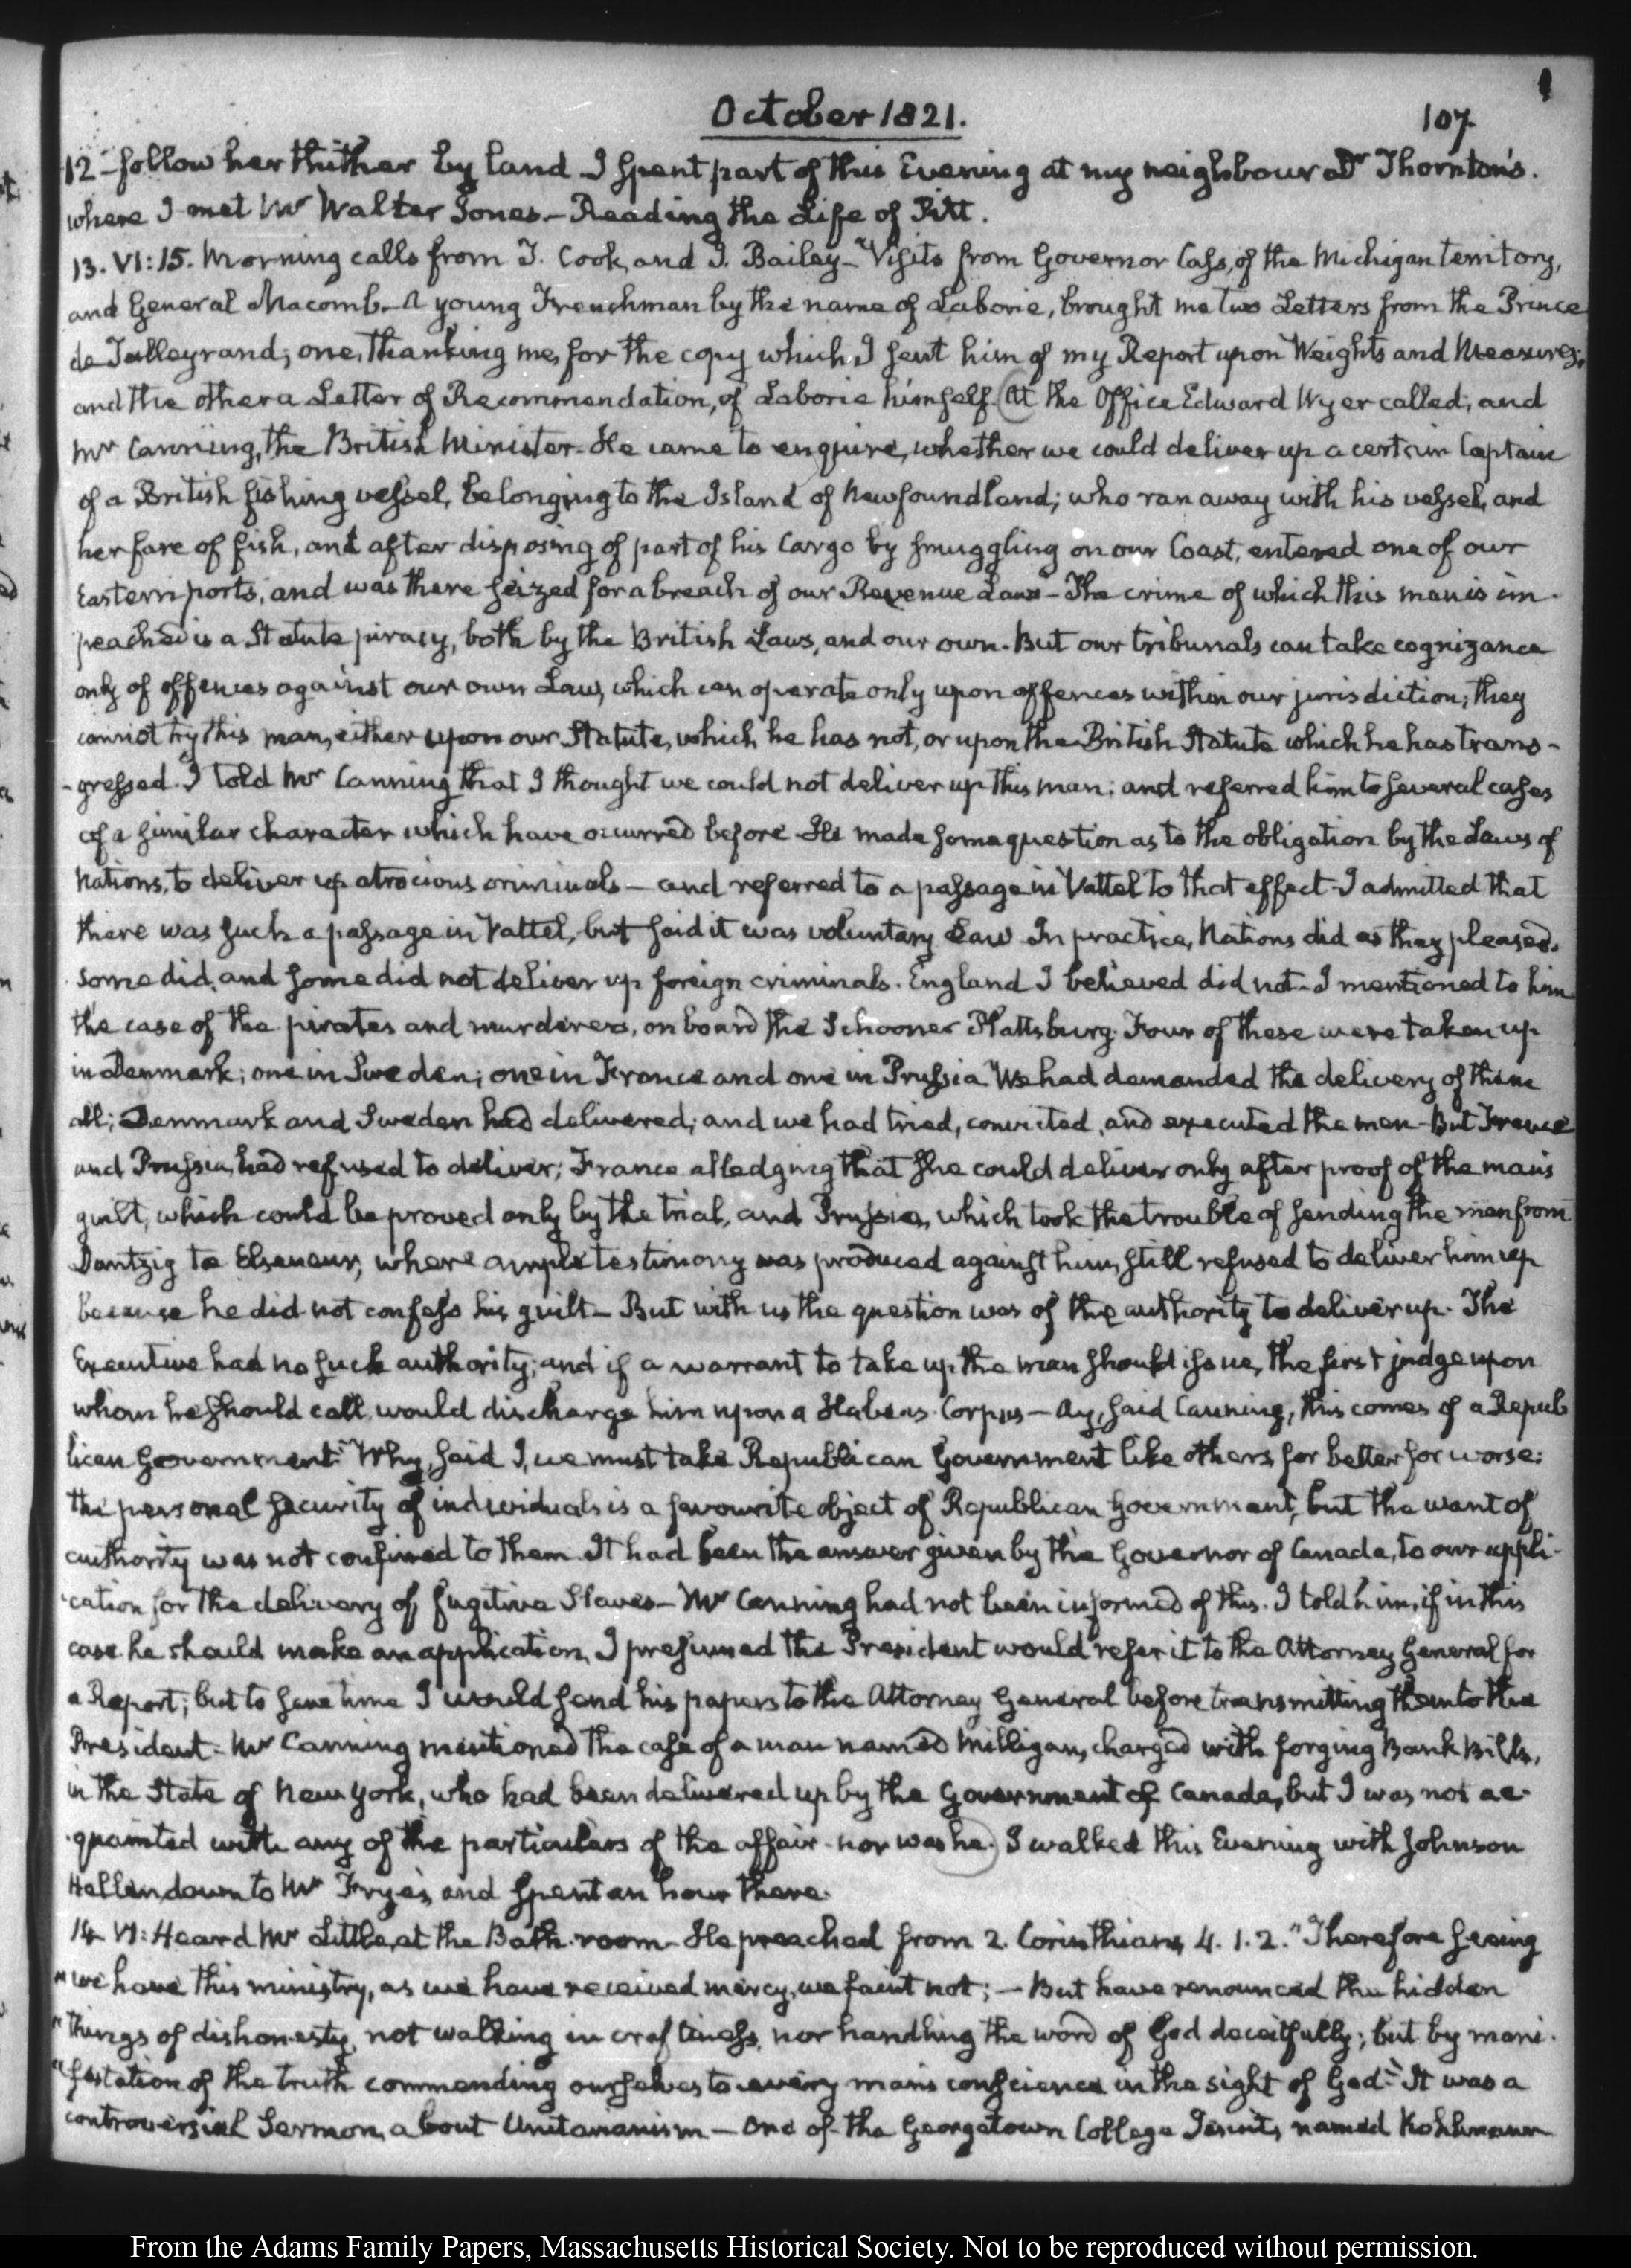 October 1821.
107
12 follow her thither by land I spent part of this Evening at my neighbour Dr Thornton's.
where I met Mr Walter Jones.— Reading the Life of Pitt.
13. VI:15. Morning calls from J. Cook, and J. Bailey— Visits from Governor Cass, of the Michigan territory,
and General Macomb. A young Frenchman by the name of Laborie, brought me two Letters from the Prince
de Talleyrand; one, thanking me, for the copy which I sent him of my Report upon Weights and Measures;
and the other a Letter of Recommendation, of Laborie himself. At the Office Edward Wyer called; and
Mr Canning, the British Minister. He came to enquire, whether we could deliver up a certain Captain
of a British fishing vessel, belonging to the Island of Newfoundland; who ran away with his vessel, and
her fare of fish, and after disposing of part of his Cargo by smuggling on our Coast, entered one of our
Eastern ports, and was there seized for a breach of our Revenue Laws— The crime of which this man is im-
peached is a Statute piracy, both by the British Laws, and our own. But our tribunals can take cognizance
only of offences against our own Laws, which can operate only upon offences within our jurisdiction; they
cannot try this man, either upon our Statute, which he has not, or upon the British Statute which he has trans-
-gressed. I told Mr Canning that I thought we could not deliver up this man; and referred him to several cases
of a similar character which have occurred before. He made some question as to the obligation by the Laws of
Nations, to deliver up atrocious criminals— and referred to a passage in Vattel to that effect. I admitted that
there was such a passage in Vattel, but said it was voluntary Law. In practice, Nations did as they pleased.
Some did, and some did not deliver up foreign criminals. England I believed did not. I mentioned to him
the case of the pirates and murderers, on board the Schooner Plattsburg. Four of these were taken up
in Denmark; one in Sweden; one in France and one in Prussia. We had demanded the delivery of them
all; Denmark and Sweden had delivered; and we had tried, convicted, and executed the men. But France
and Prussia, had refused to deliver; France alledging that she could deliver only after proof of the man's
guilt, which could be proved only by the trial, and Prussia, which took the trouble of sending the man from
Dantzig to Elseneur, where ample testimony was produced against him, still refused to deliver him up
because he did not confess his guilt— But with us the question was of the authority to deliver up. The
Executive had no such authority; and if a warrant to take up the man should issue, the first judge upon
whom he should call, would discharge him upon a Habeas Corpus— Ay, said Canning, this comes of a Repub
lican Government. Why, said I, we must take Republican Government like others, for better for worse:
the personal security of individuals is a favourite object of Republican Government, but the want of
authority was not confined to them. It had been the answer given by the Governor of Canada, to our appli-
-cation for the delivery of fugitive Slaves— Mr Canning had not been informed of this. I told him, if in this
case he should make an application, I presumed the President would refer it to the Attorney General for
a Report; but to save time I would send his papers to the Attorney General before transmitting them to the
President. Mr Canning mentioned the case of a man named Milligan, charged with forging Bank Bills,
in the State of New York, who had been delivered up by the Government of Canada, but I was not ac-
-quainted with any of the particulars of the affair. nor was he. I walked this Evening with Johnson
Hellen down to Mr Frye's, and spent an hour there.
14. VI: Heard Mr Little, at the Bath-room. He preached from 2. Corinthians 4. 1. 2. "Therefore seeing
"we have this ministry, as we have received mercy, we faint not; — But have renounced the hidden
"things of dishonesty, not walking in craftiness, nor handling the word of God deceitfully; but by mani-
"festation of the truth commending ourselves to every man's conscience in the sight of God." It was a
controversial Sermon, about Unitarianism— One of the Georgetown College Jesuits, named Kohlmann
From the Adams Family Papers, Massachusetts Historical Society. Not to be reproduced without permission.